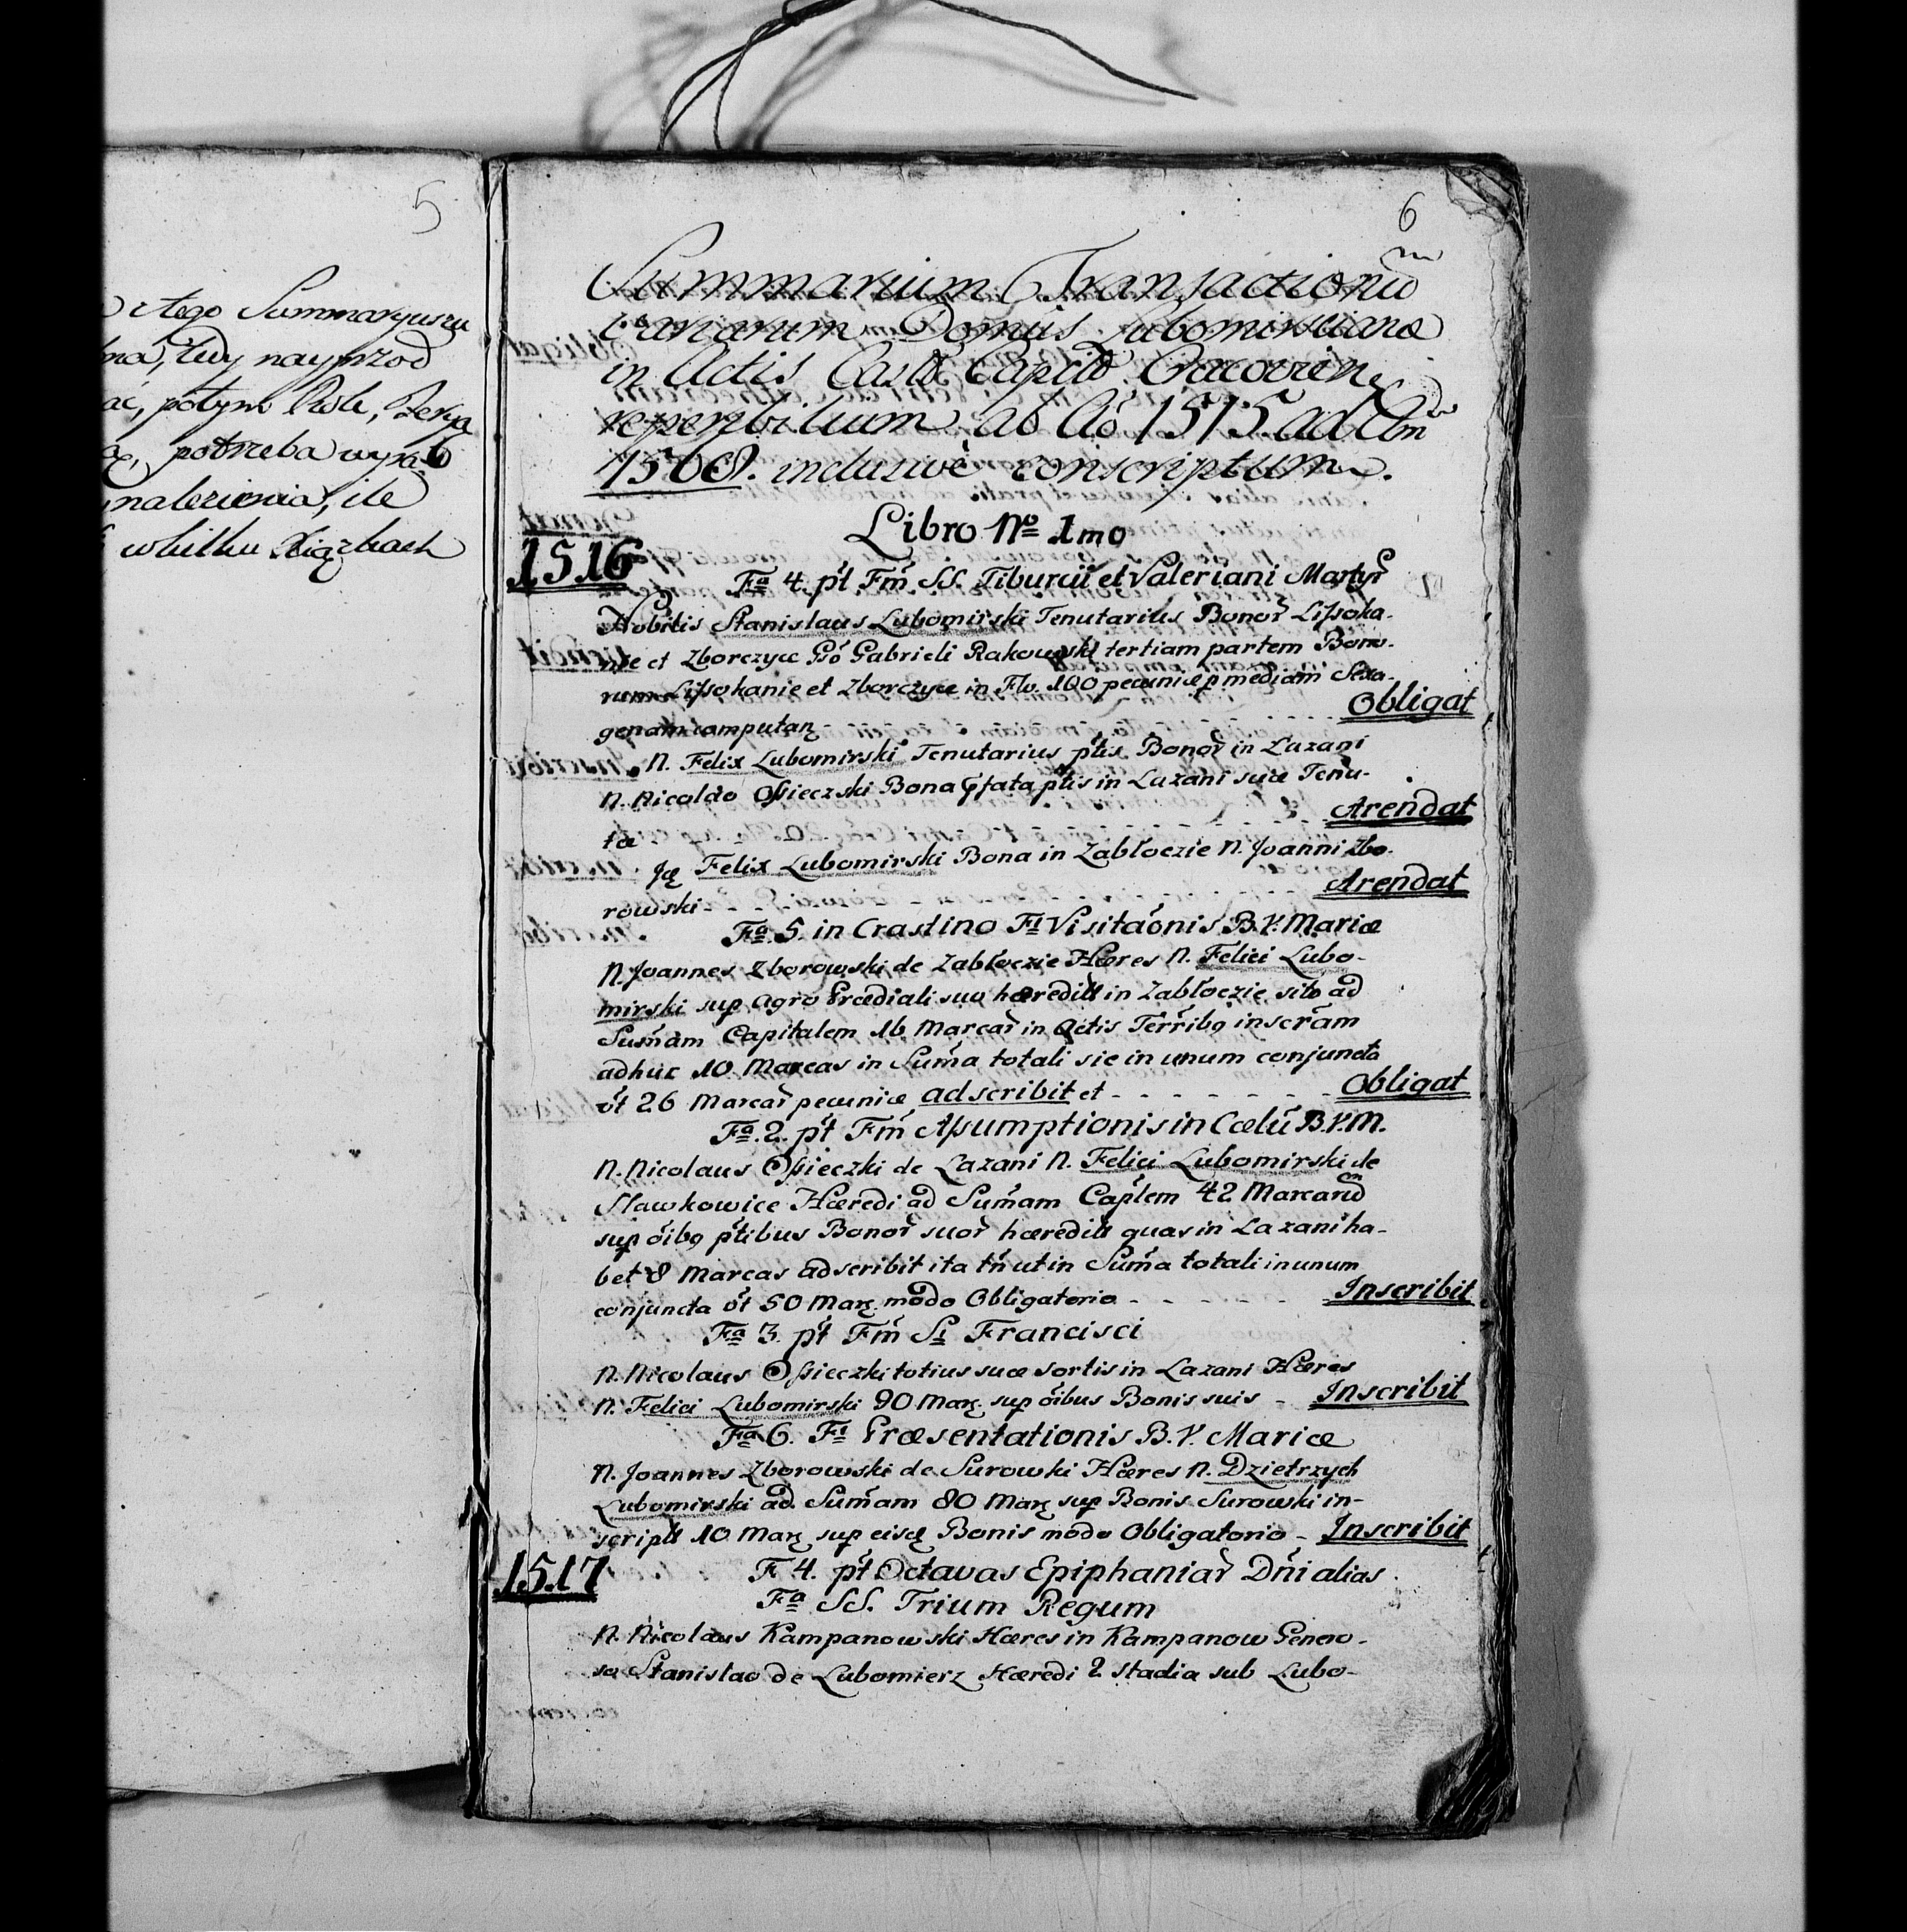 5
z tego Summaryuszu
tedy nayprzod
potym Rok,
potrzeba wypa
nalezienia, ile
wkilku Xiązkach
6
Summarium Transactionũ
variarum Domûs Lubomirscianæ
in Actis Castr̃ Capitlõ Cracovien̄
reperibilium ab Aõ 1515. ad Am̃
1568. inclusivè conscriptum.
Libro Nº 1mo
1516
Fa 4. pt̃ Fm̃ SS. Tiburcii et Valeriani Martyr̃
Nobilis Stanislaus Lubomirski Tenutarius Bonor̃ Lissoka-
nie et Zborczyce Gsõ Gabrieli Rakowski tertiam partem Bono-
rum Lissokanie et Zborczyce in Flo. 100 pecuniæ p mediam Sexa-
genam computanȝ - - - - Obligat
N. Felix Lubomirski Tenutarius ptis Bonor̃ in Lazani
N. Nicoldo Ossieczski Bona pfata ptis in Lazani suæ Tenu-
tæ - - - - Arendat
Felix Lubomirski Bona in Zabłoczie N. Joanni Zbo-
rowski - - - - Arendat
Fa. 5. in Crastino Fi Visitaõnis B.V. Mariæ
N. Joannes Zborowski de Zabłoczie Hæres N. Felici Lubo-
mirski sup Agro Prædiali suo hæredit̃ in Zabłoczie sito ad
Sum̃am Capitalem 16 Marcar̃ in Actis Terr̃ibȝ inscr̃am
adhuc 10 Marcas in Sum̃a totali sic in unum conjuncta
ṽt 26 Marcar̃ pecuniæ adscribit et - - - - Obligat
Fa. 2. pt̃ Fm̃ Assumptionis in Cælũ B.V.M.
N. Nicolaus Ossieczki de Lazani N. Felici Lubomirski de
Slawkowice Hæredi ad Sum̃am Cap̃lem 42 Marcarũ
sup õibȝ ptibus Bonor̃ suor̃ hæredit̃ quas in Lazani ha-
bet 8 Marcas adscribit ita tñ ut in Sum̃a totali in unum
conjuncta ṽt 50 Marȝ modo Obligatorio - - - - Inscribit
Fa 3. pt̃ Fm̃ Si Francisci
N. Nicolaus Ossieczki totius suæ sortis in Lazani Hæres
N. Felici Lubomirski 90 Marȝ sup õibus Bonis suis - Inscribit
Fa 6. Fi Præsentationis B.V. Mariæ
N. Joannes Zborowski de Surowki Hæres N. Dzietrzych
Lubomirski ad Sum̃am 80 Marȝ sup Bonis Surowki in-
script̃ 10 Marȝ sup eisȝ Bonis modo Obligatorio - Inscribit
1517
F 4. pt̃ Octavas Epiphaniar̃ Dñi alias
Fa SS. Trium Regum
N. Nicolaus Kampanowski Hæres in Kampanow Genero-
so Stanislao de Lubomierz Hæredi 2 stadia sub Lubo-